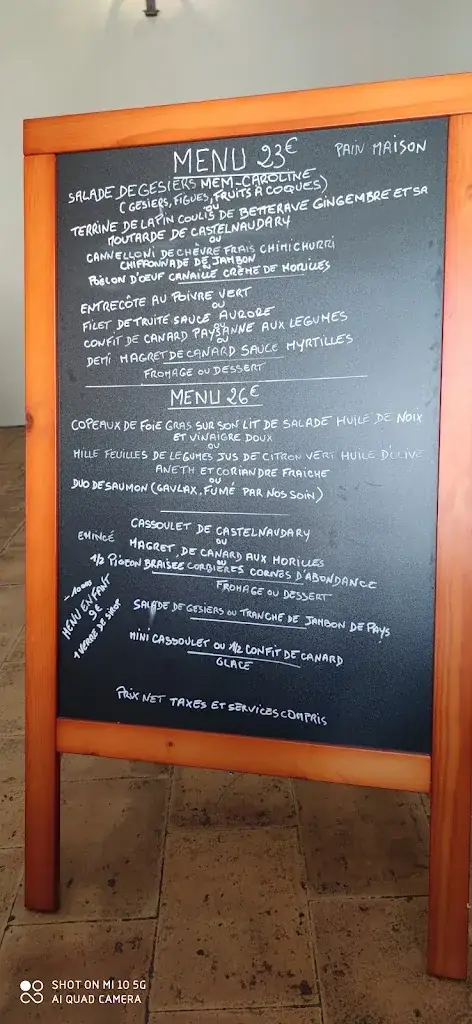 MENU 23€
PAIN MAISON
SALADE DE GESIERS MEM-CAROLINE
(GESIERS, FIGUES, FRUITS A COQUES)
OU
TERRINE DE LAPIN COULIS DE BETTERAVE GINGEMBRE ET SA
MOUTARDE DE CASTELNAUDARY
OU
CANNELLONI DE CHÈVRE FRAIS CHIMICHURRI
CHIFFONNADE DE JAMBON
POÊLON D'OEUF CANAILLE CRÈME DE MORILLES
ENTRECÔTE AU POIVRE VERT
OU
FILET DE TRUITE SAUCE AURORE
OU
CONFIT DE CANARD PAYSANNE AUX LEGUMES
OU
DEMI MAGRET DE CANARD SAUCE MYRTILLES
FROMAGE OU DESSERT
MENU 26€
COPEAUX DE FOIE GRAS SUR SON LIT DE SALADE HUILE DE NOIX
ET VINAIGRE DOUX
OU
MILLE FEUILLES DE LEGUMES JUS DE CITRON VERT HUILE D'OLIVE
ANETH ET CORIANDRE FRAICHE
OU
DUO DE SAUMON (GAVLAX, FUMÉ PAR NOS SOIN)
CASSOULET DE CASTELNAUDARY
OU
EMINCÉ MAGRET DE CANARD AUX MORILLES
OU
1/2 PIGEON BRAISÉE CORBIÈRES CORNES D'ABONDANCE
FROMAGE OU DESSERT
- 10 ANS
MENU ENFANT
9€
1 VERRE DE SIROP
SALADE DE GESIERS OU TRANCHE DE JAMBON DE PAYS
MINI CASSOULET OU 1/2 CONFIT DE CANARD
GLACE
PRIX NET TAXES ET SERVICES COMPRIS
SHOT ON MI 10 5G
AI QUAD CAMERA